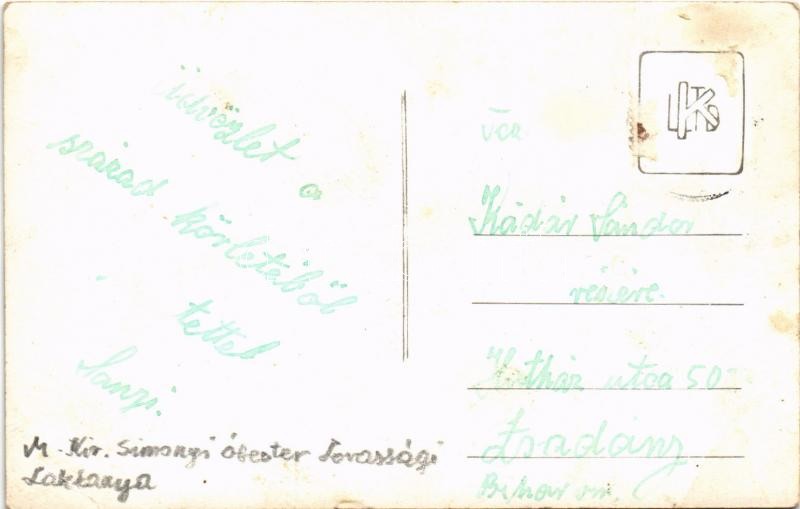 Üdvözlet a
század körletéből
tettel
Sanyi.
M. Kir. Simonyi óbester Lovassági
Laktanya
Kádár Sándor
részére.
utca 50
Zsadány
Bihar vm.